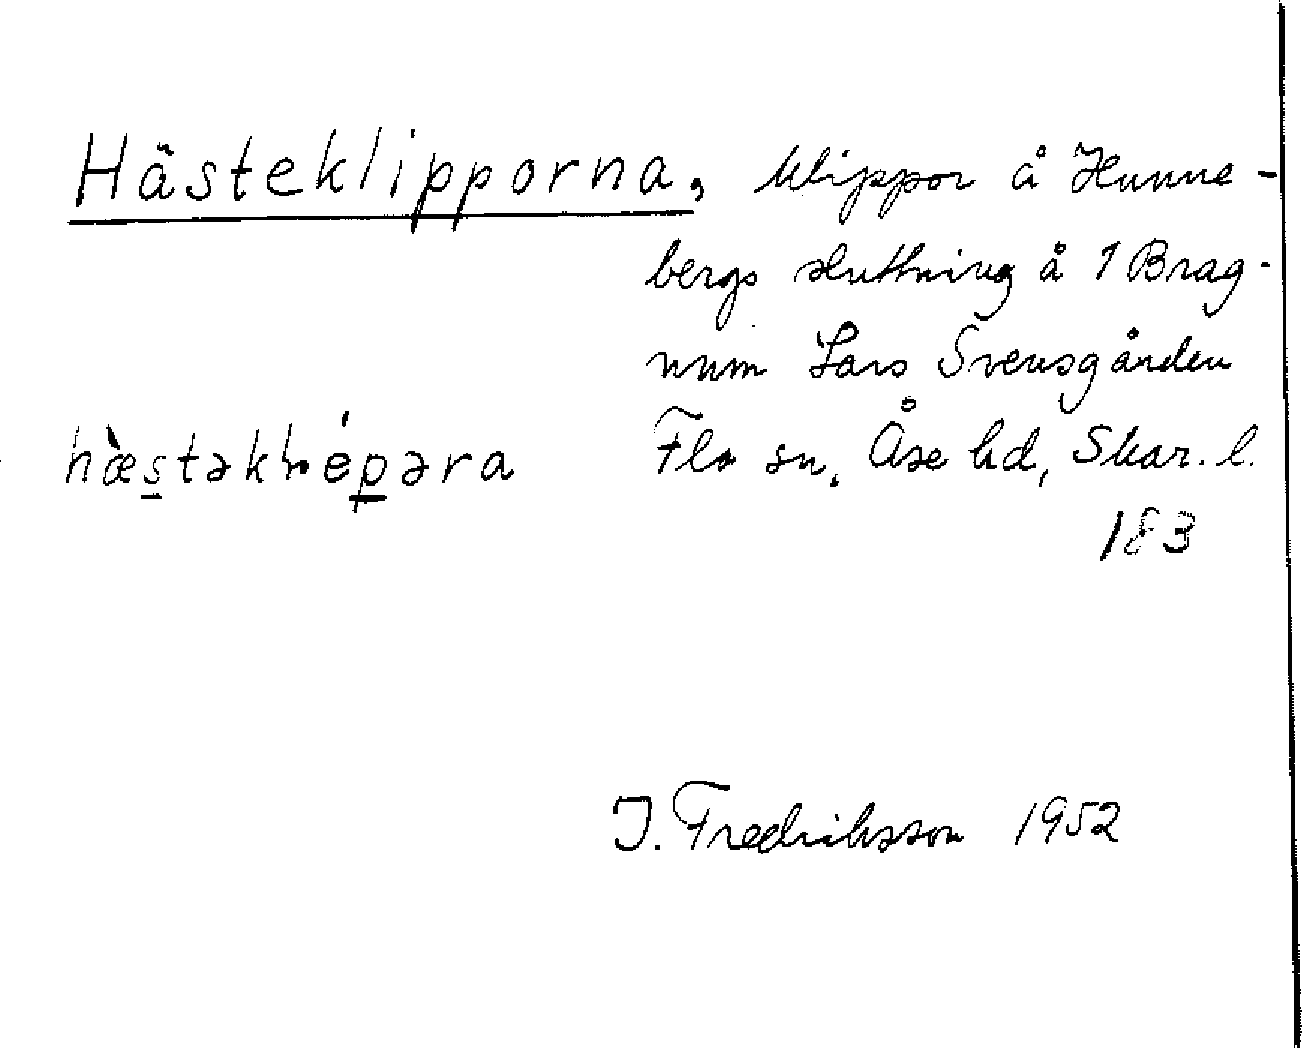 Hästeklipporna, klippor å Hunne-
bergs sluttning å 1 Brag-
num Lars Svensgården
Flo sn, Åse hd, Skar. l.
183
hæ̀stəkl épəra
J. Fredriksson 1952